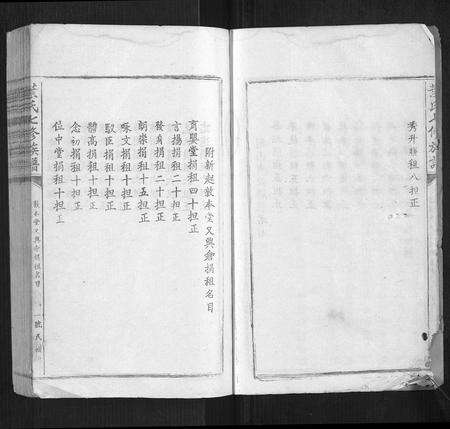 附新起敦本堂文興會捐租名目
育嬰堂捐租四十担正
言揚捐租二十担正
發身捐租二十担正
朝崇捐租十五担正
咏文捐租十担正
馭臣捐租十担正
體高捐租十担正
念初捐租十担正
位中堂捐租十担正
葉氏七修族譜
敦本堂文興會捐租名目
一
秀升捐租八担正
葉氏七修族譜